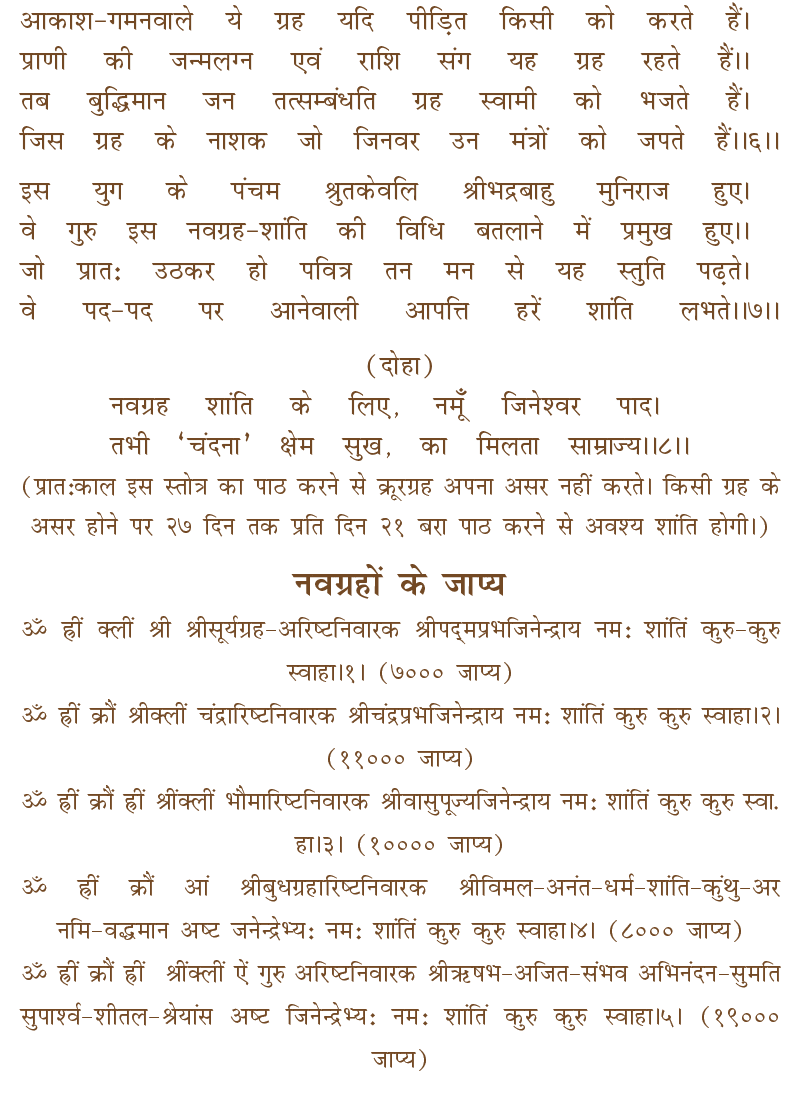 आकाश-गमनवाले ये ग्रह यदि पीड़ित किसी को करते हैं।
प्राणी की जन्मलग्न एवं राशि संग यह ग्रह रहते हैं।।
तब बुद्धिमान जन तत्सम्बंधति ग्रह स्वामी को भजते हैं।
जिस ग्रह के नाशक जो जिनवर उन मंत्रों को जपते हैं।।६।।
इस युग के पंचम श्रुतकेवलि श्रीभद्रबाहु मुनिराज हुए।
वे गुरु इस नवग्रह-शांति की विधि बतलाने में प्रमुख हुए।।
जो प्रात: उठकर हो पवित्र तन मन से यह स्तुति पढ़ते।
वे पद-पद पर आनेवाली आपत्ति हरें शांति लभते।।७।।
(दोहा)
नवग्रह शांति के लिए, नमूँ जिनेश्वर पाद।
तभी ‘चंदना’ क्षेम सुख, का मिलता साम्राज्य।।८।।
(प्रात:काल इस स्तोत्र का पाठ करने से क्रूरग्रह अपना असर नहीं करते। किसी ग्रह के
असर होने पर २७ दिन तक प्रति दिन २१ बरा पाठ करने से अवश्य शांति होगी।)
नवग्रहों के जाप्य
ॐ ह्रीं क्लीं श्री श्रीसूर्यग्रह-अरिष्टनिवारक श्रीपद्मप्रभजिनेन्द्राय नम: शांतिं कुरु-कुरु
स्वाहा।१। (७००० जाप्य)
ॐ ह्रीं क्रौं श्रीक्लीं चंद्रारिष्टनिवारक श्रीचंद्रप्रभजिनेन्द्राय नम: शांतिं कुरु कुरु स्वाहा।२।
(११००० जाप्य)
ॐ ह्रीं क्रौं ह्रीं श्रींक्लीं भौमारिष्टनिवारक श्रीवासुपूज्यजिनेन्द्राय नम: शांतिं कुरु कुरु स्वा.
हा।३। (१०००० जाप्य)
ॐ ह्रीं क्रौं आं श्रीबुधग्रहारिष्टनिवारक श्रीविमल-अनंत-धर्म-शांति-कुंथु-अर
नमि-वद्धमान अष्ट जनेन्द्रेभ्य: नम: शांतिं कुरु कुरु स्वाहा।४। (८००० जाप्य)
ॐ ह्रीं क्रौं ह्रीं श्रींक्लीं ऐं गुरु अरिष्टनिवारक श्रीऋषभ-अजित-संभव अभिनंदन-सुमति
सुपार्श्व-शीतल-श्रेयांस अष्ट जिनेन्द्रेभ्य: नम: शांतिं कुरु कुरु स्वाहा।५। (१९०००
जाप्य)